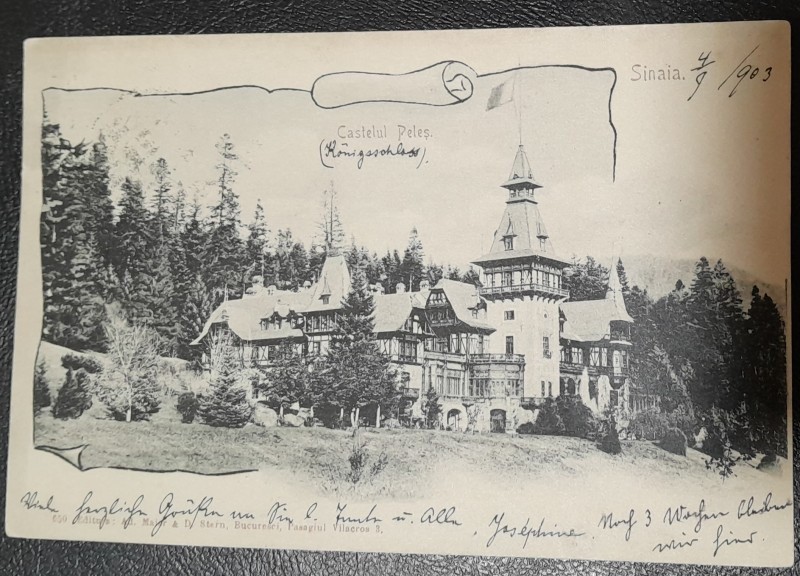 Sinaia. 4/9 /903
Castelul Peleș.
(Königsschloss).
Viele herzliche Grüße an Sie l. Tante u. Alle Josephine. Noch 3 Wochen bleiben
wir hier.
650 Editura: Ad. Maier & D. Stern, Bucuresci, Pasagiul Vilacros 3.